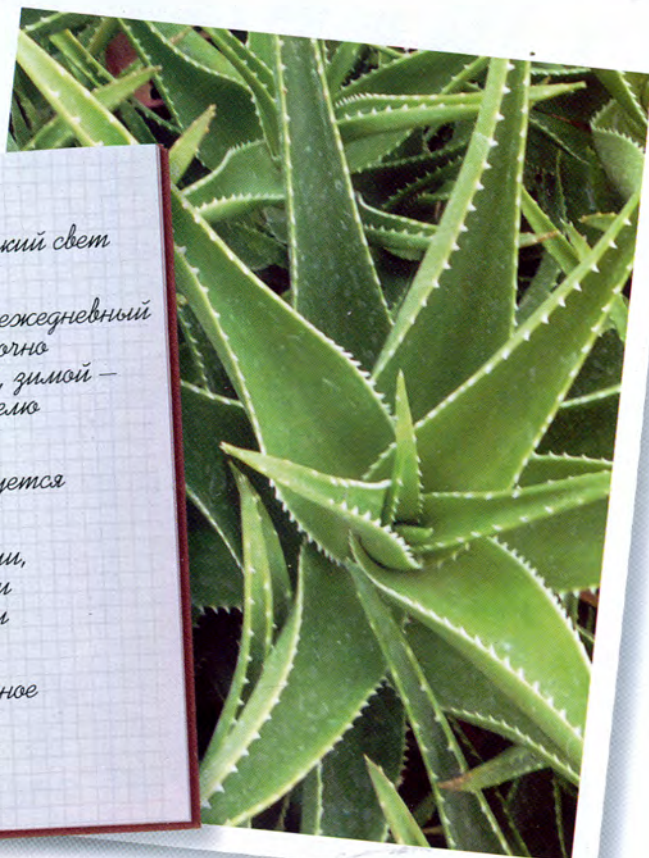 кий свет
ежедневный
очно
, зимой –
елю
уется
ии,
и
и
ное